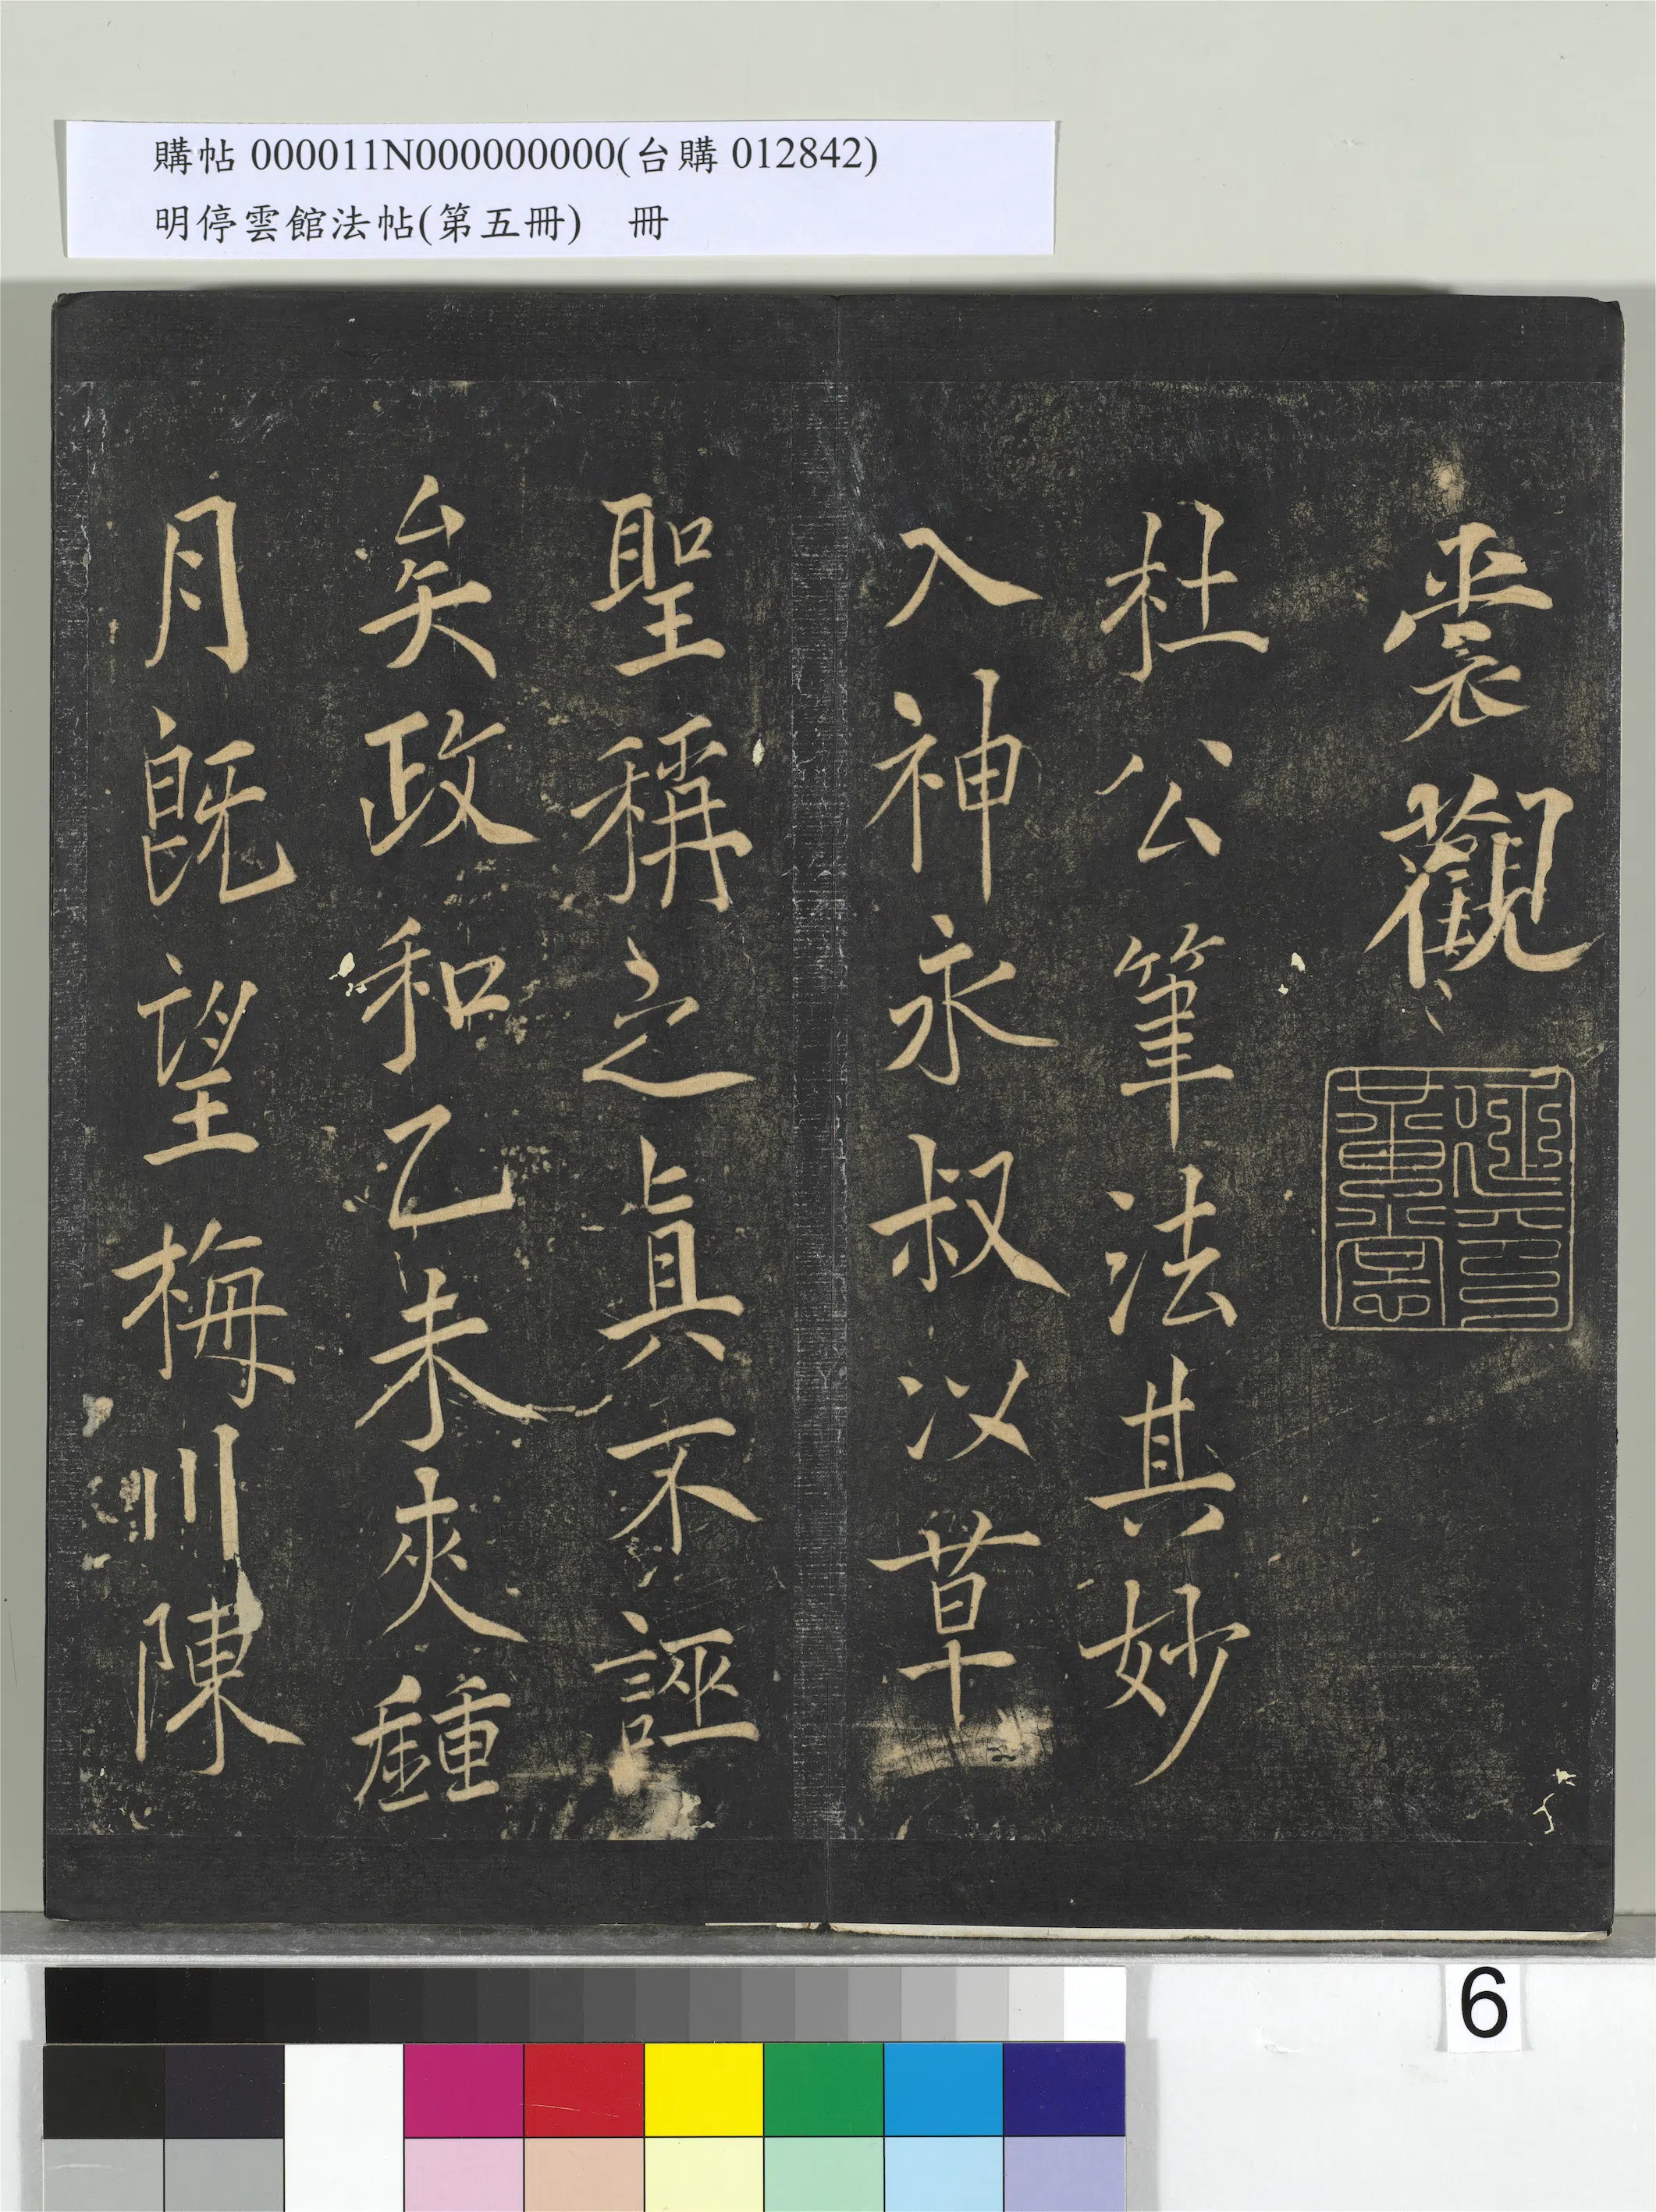 購帖 000011N000000000(台購 012842)
明停雲館法帖(第五冊) 冊
裳觀
杜公筆法其妙
入神永叔以草
聖稱之眞不誣
矣政和乙未夾鍾
月旣望梅川陳
6